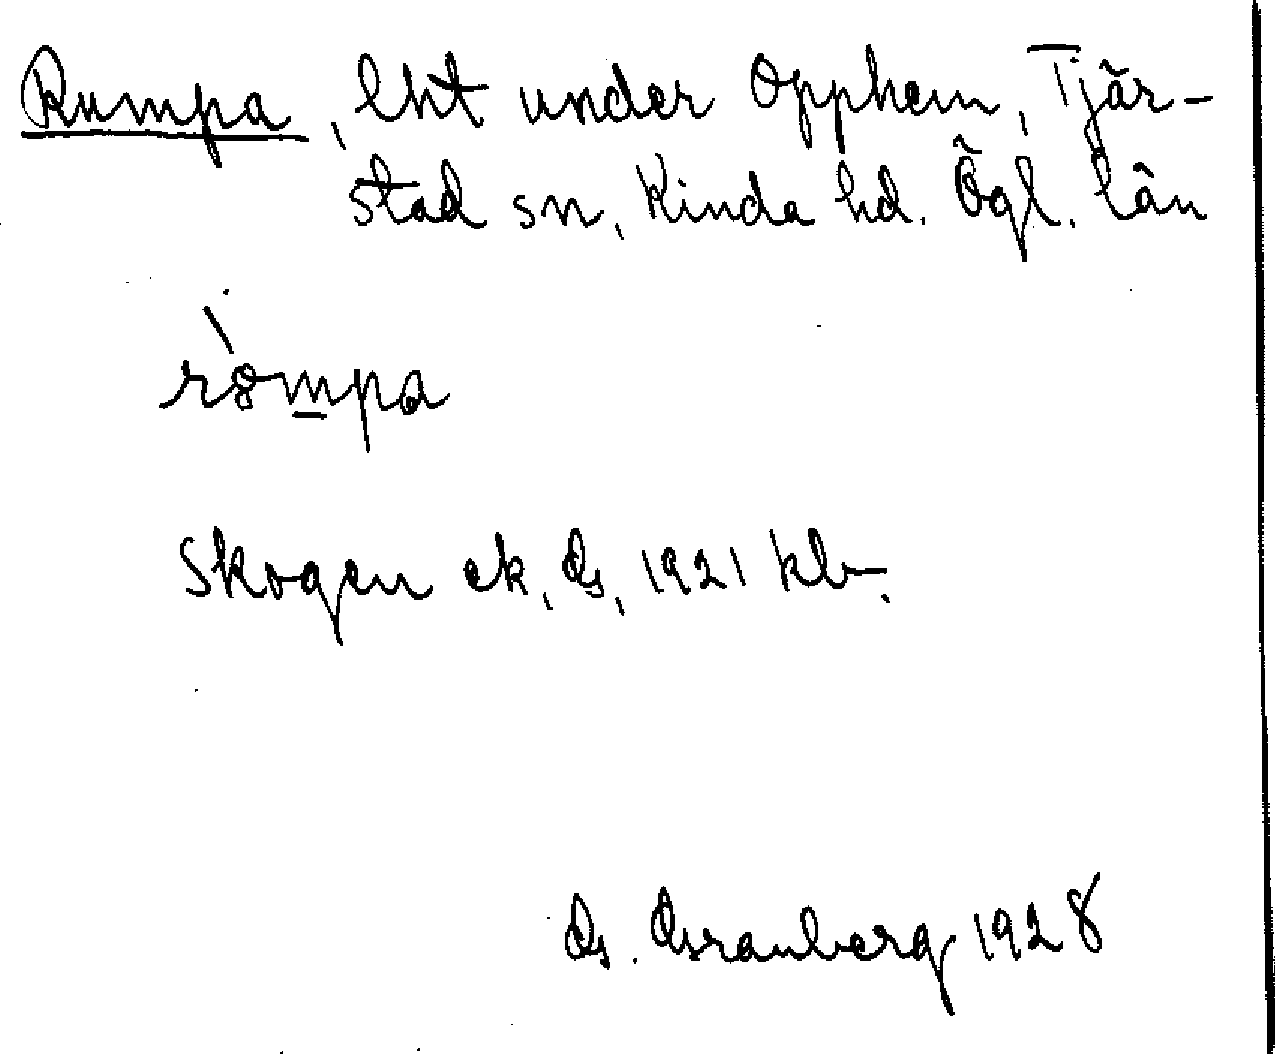 Rumpa, lht under Opphem, Tjär-
stad sn, Kinda hd. Ögl. län
ròmpa
Skogen ek, G, 1921 kb.
G. Granberg 1928